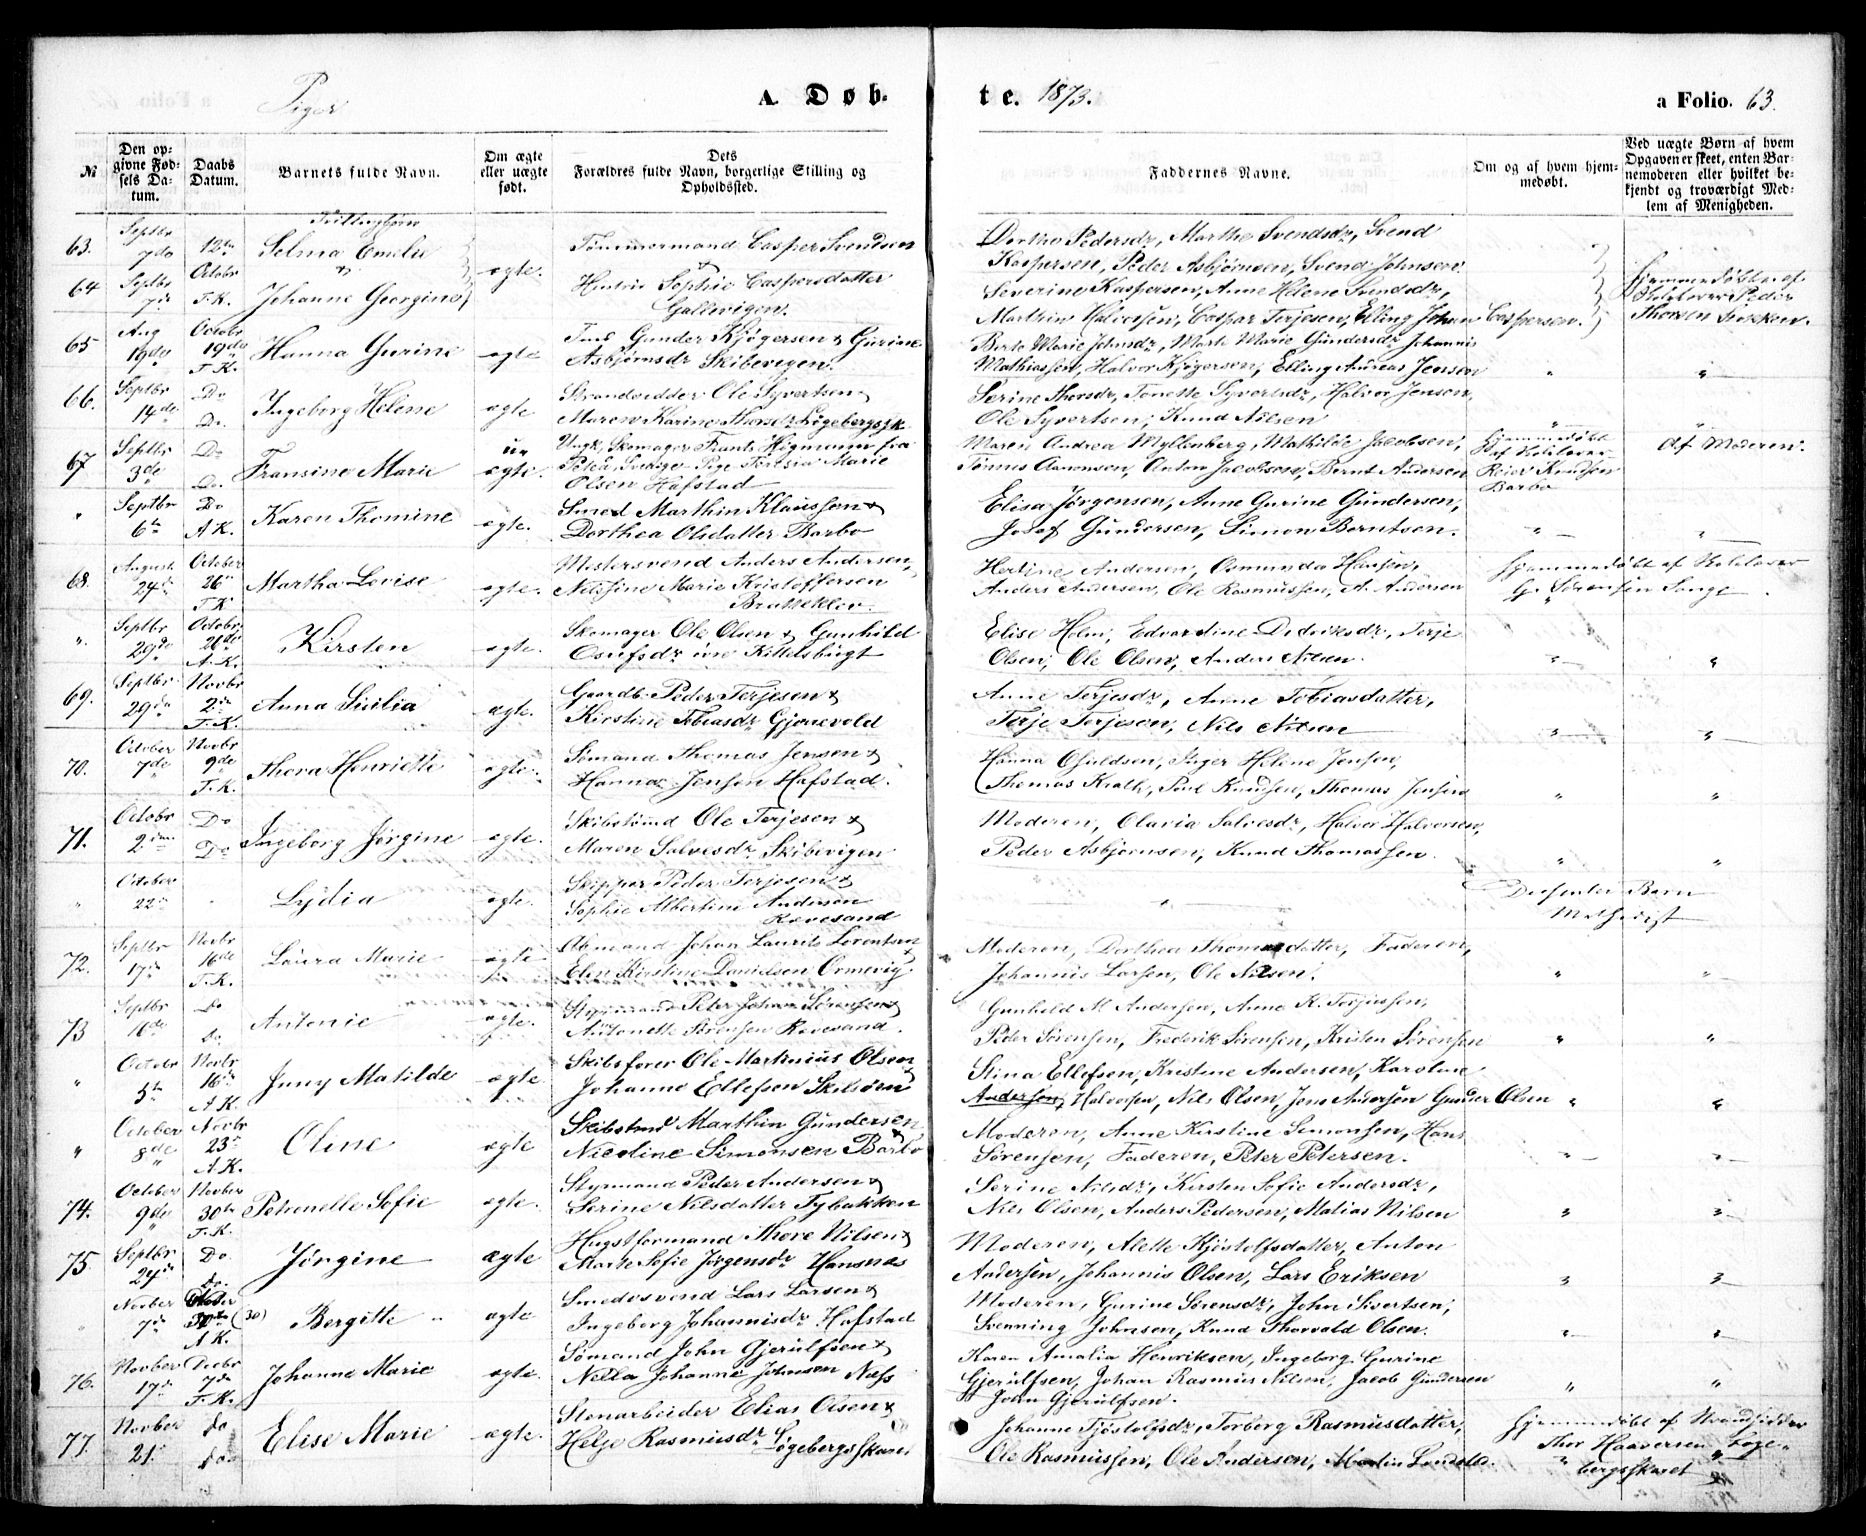 Piger
A. Døb- te. 1873.
a Folio. 63.
№
Den opgivne Fødsels Datum.
Daabs Datum.
Barnets fulde Navn.
Om ægte eller uægte født.
Dets Forældres fulde Navn, borgerlige Stilling og Opholdssted.
Faddernes Navne.
Om og af hvem hjemmedøbt.
Ved uægte Børn af hvem Opgaven er skeet, enten Barnemoderen eller hvilket bekjendt og troværdigt Medlem af Menigheden.
Tvillingbørn
63. Septbr 7de 12te Selma Emilie Tømmermand Casper Svendsen Dorthe Pedersdr, Marthe Svendsdr, Svend
& ægte. & Kaspersen, Peder Asbjørnsen, Svend Johnsen.
64 Septbr 7de Octobr T.K. Johanne Georgine Hustru Sophie Caspersdatter Severine Kaspersen, Anne Helene Svendsdr, Hjemmedøbt af
Gallevigen. Martin Halvorsen, Caspar Terjesen, Elling Johan Caspersen. Kirkelærer Peder Thorsen
65 Aug 19de Octobr 19de T.K. Hanna Gurine ægte Gunder Kjøgersen & Gurine Berte Marie Johnsdr, Marte Marie Gundersdr Johannis
Asbjørnsdr Skibevigen. Mathiassen, Halvor Kjøgersen, Elling Andreas Jensen " "
66. Septbr 14de Do Do. Ingeborg Helene ægte Strandsidder Ole Syvertsen & Serine Thorsdr, Tonette Syversdr, Halvor Jensen,
Maren Karine Thorsdr Løgebergsk. Ole Syvertsen, Knud Nilsen " "
67 Septbr 3de Do Do. Fransine Marie uægte. Ungk. Skomager Frants Högmann fra Maren Andrea Myllenberg, Mathilde Jacobsen, Hjemmedøbt Af Moderen.
Sverige Pige Marie Tønnes Aanonsen, Anton Jacobsen, Bernt Andersen af Kirkelærer
Olsen Hafstad Reier Knudsen Barbo
" Septbr 6te Do A.K. Karen Thomine ægte. Smed Marthin Klausson & Elisa Jørgensen, Anne Gurine Gundersen,
Dorthea Olsdatter Barbo Josef Gundersen, Simon Berntsen. " "
68. August 24de October 26de T.K. Martha Lovise ægte. Mestersvend Anders Andersen, Hertine Andersen, Osmunda Hansen, Hjemmedøbt af Kirkelærer
Nilssine Marie Kristoffersen Anders Andersen, Ole Rasmussen, A. Andersen G. Sørensen Songe.
Bratteklev.
". Septbr 29de Octobr. 26de A.K. Kirsten ægte. Skomager Ole Olsen & Gunhild Elise Holm, Edvardine Didriksdr, Terje
Osufsdr øvre Kittelsbugt Olsen, Ole Olsen, Anders Nilsen. " "
69. Septbr 29de Novbr 2de T.K. Anna Sicilia ægte. Gaardb. Peder Terjesen & Anne Terjesdr, Anne Tobiasdatter,
Kirstine Tobiasdr Gjerrevold Terje Terjesen, Nils Nilsen " "
70. October 7de Novbr 9de T.K. Thora Henriette ægte. Sømand Thomas Jensen & Hanna Osoldsen, Inger Helene Jensen,
Hanna Jensen Hafstad. Thomas Krath, Poul Knudsen, Thomas Jensen " "
71. Octobr 2den Do Do Ingeborg Jørgine ægte. Skibstømd Ole Terjesen & Moderen, Olavia Salvesdr, Halvor Halvorsen,
Maren Salvesdr Skibevigen Peder Asbjørnsen, Knud Thomassen. " "
" October 22de " Lydia ægte. Skipper Peder Terjesen & " Dissenter Barn
Sophie Albertine Andersen Revesand Methodist
72. Septbr 17de Novbr 16de T.K. Laura Marie ægte Johan Laurits Lorentsen & Moderen, Dorthea Thomasdatter, Faderen,
Elen Kirstine Danielsen Ormevig Johannis Larsen, Ole Nilsen. " "
73 Septbr 16de Do do. Antonie ægte. Styrmand Peter Johan Sørensen & Gunhild M Andersen, Anne K. Terjussen,
Antonette Sørensen Revesand. Peder Sørensen, Frederik Sørensen, Kristen Sørensen " "
" October 5te Novbr 16de A.K. Juny Matilde ægte Skibsfører Ole Martinius Olsen & Stina Ellefsen, Kristine Andersen, Karoline
Johanne Ellefsen Skilsøen Andersen, Halvorsen, Nils Olsen, Jens Andersen Gunder Olsen " "
" October 8de Novbr 23de A.K. Oline ægte Skibstmd Marthin Gundersen & Moderen, Anne Kirstine Simonsen, Hans
Nicoline Simonsen Barbo Sørensen, Faderen, Peter Petersen. " "
74. October 9de Novber 30te T.K. Petronelle Sofie ægte. Styrmand Peder Andersen & Serine Nilsdr, Kirsten Sofie Andersdr,
Serine Nilsdatter Tybakken Nils Olsen, Anders Pedersen, Matias Nilsen " "
75. Septbr 24de Do do. Jørgine ægte Hugstformand Thore Nilsen & Moderen, Alette Kjøstolfsdatter, Anton
Marte Sofie Jørgensdr Hansnæs Andersen, Johannis Olsen, Lars Eriksen " "
" Novber 7de 30te (30) A.K. Bergitte ægte Smedesvend Lars Larsen & Moderen, Gurine Sørensdr, John Sivertsen,
Ingeborg Johannisdr Hafstad Svenning Johnsen, Knud Thorvald Olsen. " "
76. Novber 17de Decbr 7de T.K. Johanne Marie ægte. Sømand John Gjerulfsen & Karen Amalia Henriksen, Ingeborg Gurine
Nella Johanne Johnsen Næss Gjerulfsen, Johan Rasmus Nilsen, Jacob Gundersen " "
John Gjerulfsen.
77. Novber 21. do do. Elise Marie ægte. Stenarbeider Elias Olsen & Johanne Tjøstolfsdr, Torborg Rasmusdatter, Hjemmedøbt af Strandsidder
Helje Rasmusdr Løgebergsskaret Ole Rasmussen, Ole Andersen, Martin Londal. Thor Haaversen Løge-
bergsskaret